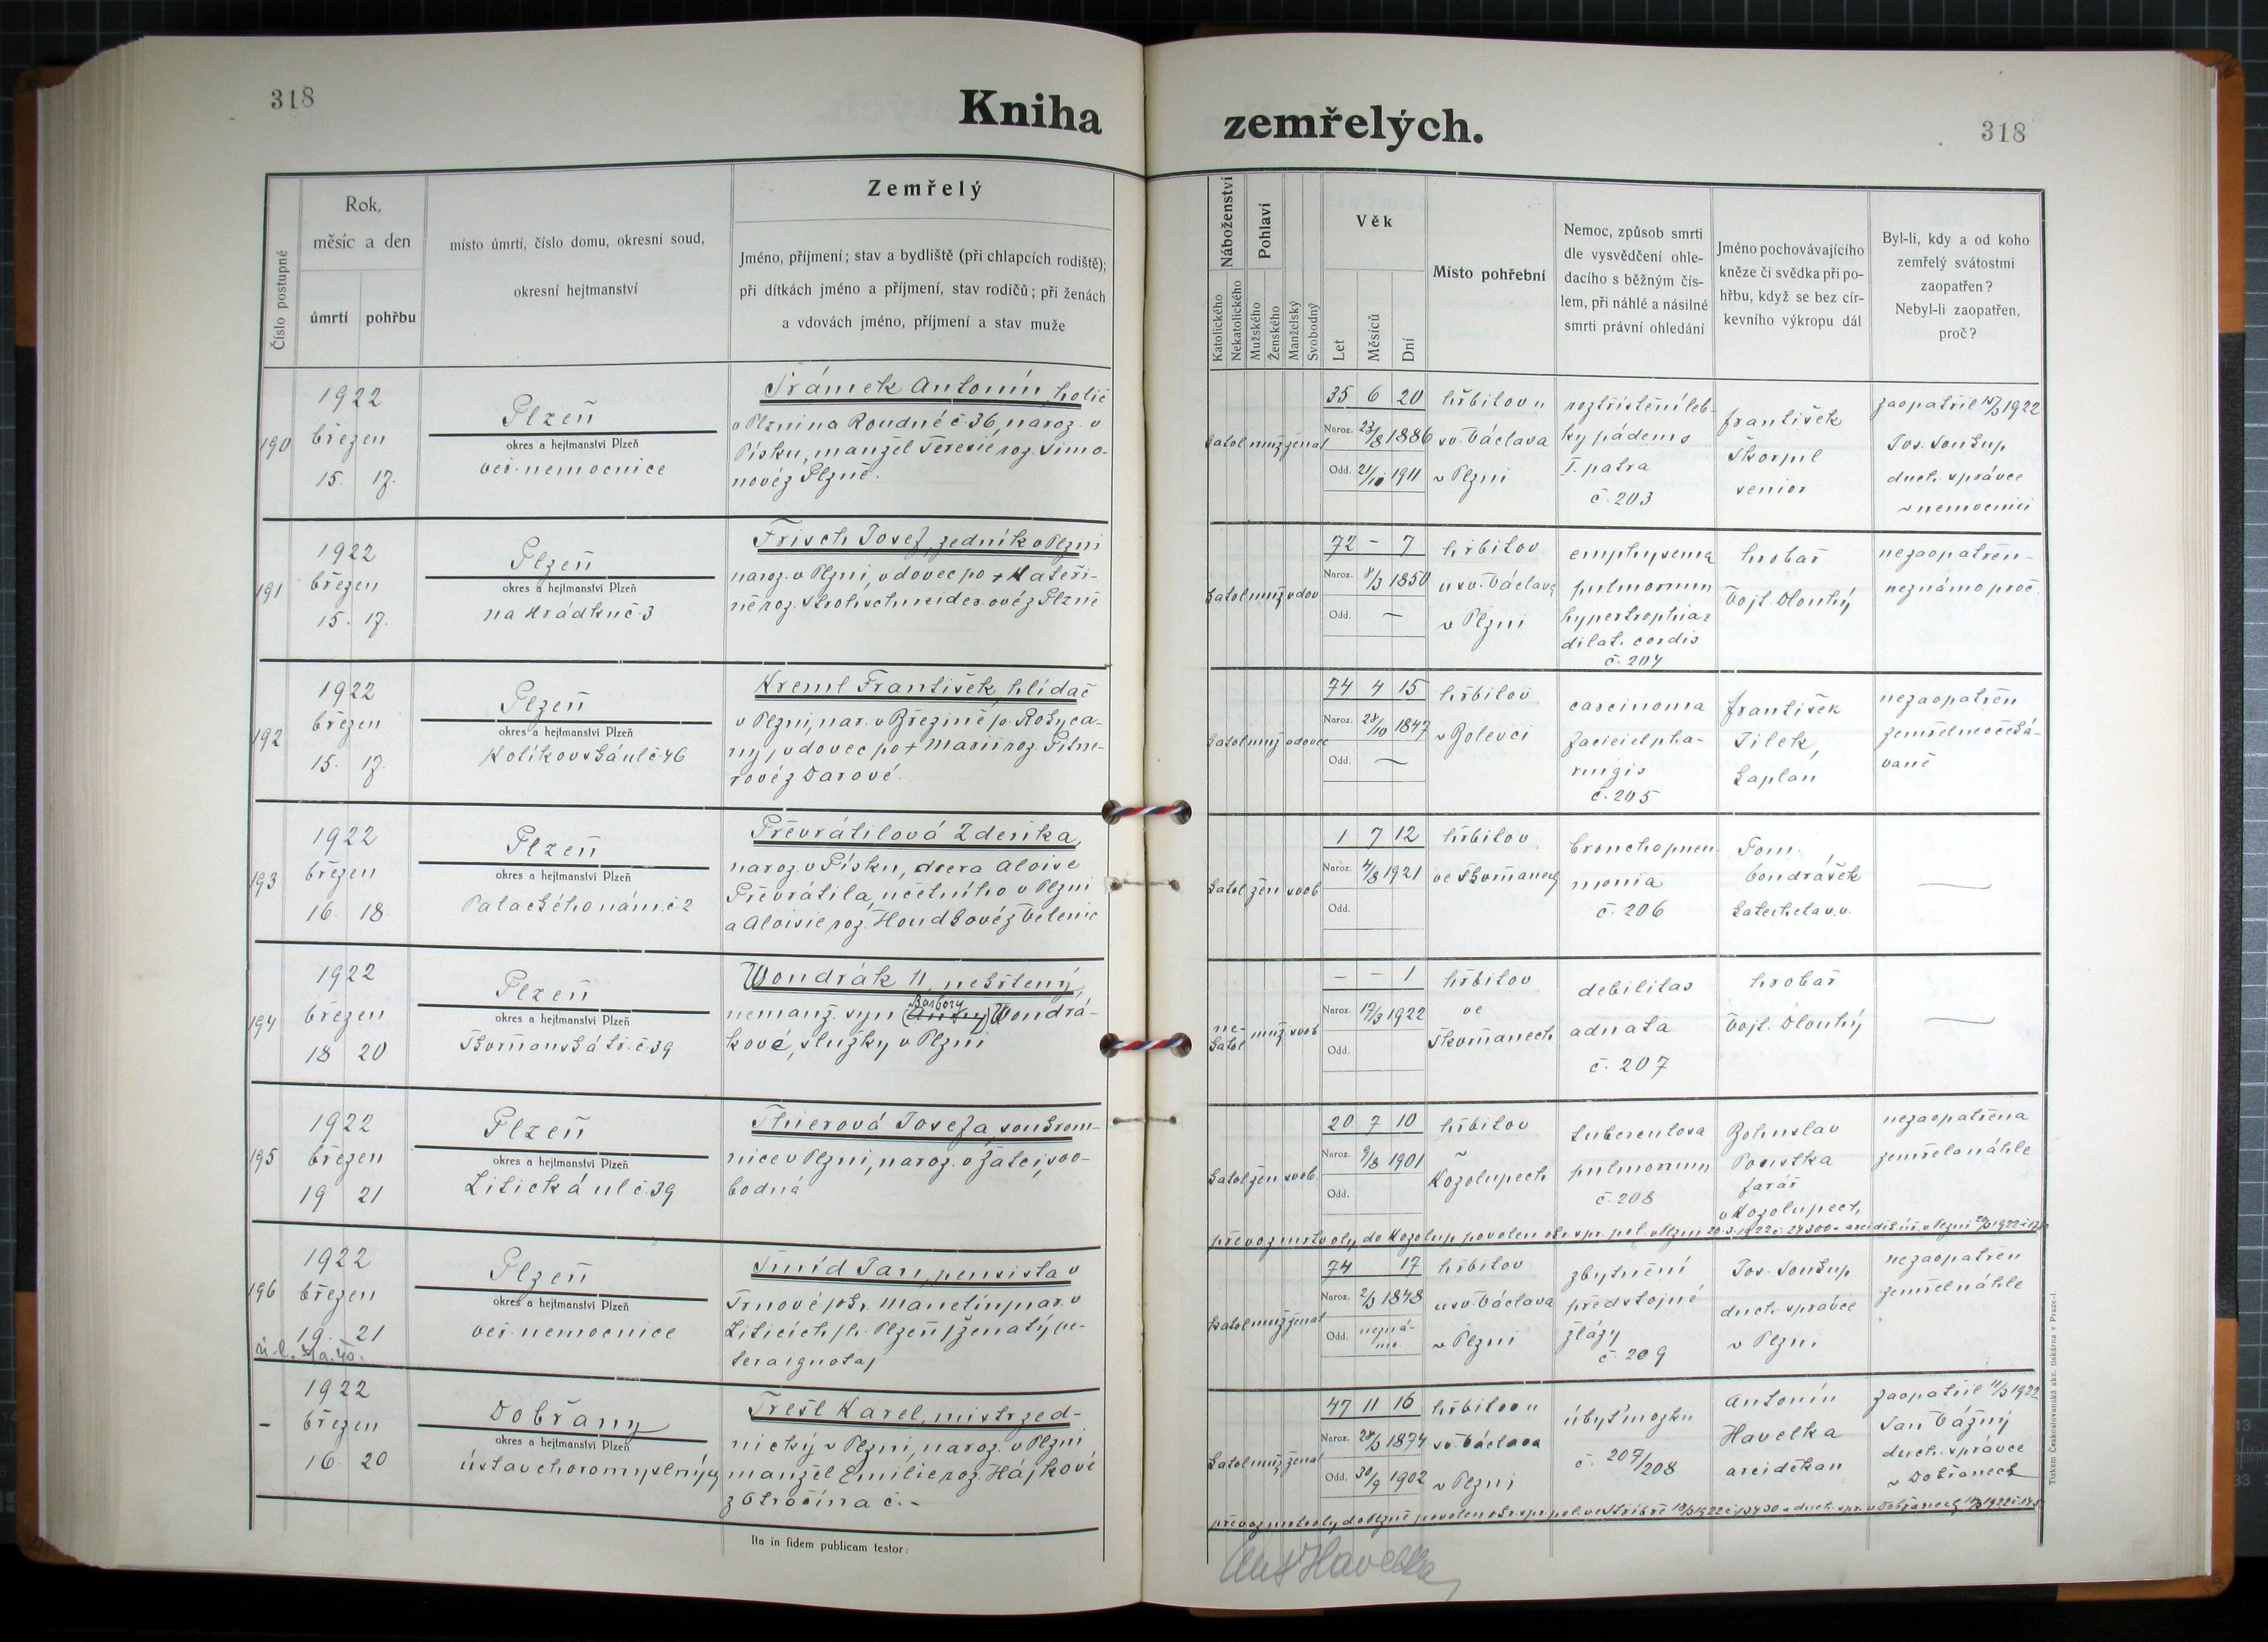 318
Kniha
zemřelých.
318
Číslo postupné
Rok,
měsíc a den
úmrtí
pohřbu
místo úmrtí, číslo domu, okresní soud,
okresní hejtmanství
Zemřelý
Jméno, příjmení; stav a bydliště (při chlapcích rodiště);
při dítkách jméno a příjmení, stav rodičů; při ženách
a vdovách jméno, příjmení a stav muže
Náboženství
Katolického
Nekatolického
Pohlaví
Mužského
Ženského
Manželský
Svobodný
Věk
Let
Měsíců
Dní
Místo pohřební
Nemoc, způsob smrti
dle vysvědčení ohle-
dacího s běžným čís-
lem, při náhlé a násilné
smrti právní ohledání
Jméno pochovávajícího
kněze či svědka při po-
hřbu, když se bez cír-
kevního výkropu dál
Byl-li, kdy a od koho
zemřelý svátostmi
zaopatřen?
Nebyl-li zaopatřen,
proč?
190
1922
březen
15. 17.
Plzeň
okres a hejtmanství Plzeň
veř. nemocnice
Šrámek Antonín, holič
v Plzni na Roudné č 36, naroz. v
Písku, manžel Terezie roz. Šimo-
nové z Plzně.
katol muž ženat
35 6 20
Naroz. 23/8 1886
Odd. 21/10 1911
hřbitov u
sv. Václava
v Plzni
roztříštění leb-
ky pádem s
I. patra
č. 203
František
Škorpil
senior
zaopatřil 15/3 1922
Jos. Soukup
duch. správce
v nemocnici
191
1922
březen
15. 17.
Plzeň
okres a hejtmanství Plzeň
na Hrádku č. 3
Frisch Josef, zedník v Plzni
naroz. v Plzni, vdovec po + Kateři-
ně roz. Strohschneiderové z Plzně
katol muž vdov
72 - 7
Naroz. 8/3 1850
Odd. —
hřbitov
u sv. Václava
v Plzni
emphysema
pulmonum
hypertrophia e
dilat. cordis
č. 204
hrobař
Vojt. Dlouhý
nezaopatřen -
neznámo proč.
192
1922
březen
15. 17.
Plzeň
okres a hejtmanství Plzeň
Kolíkovská ul č. 46
Kreml František, hlídač
v Plzni, nar. v Březině p. Rokyca-
ny, vdovec po + Marii roz. Pitne-
rové z Darové.
katol muž vdovec
74 4 15
Naroz. 28/10 1847
Odd. —
hřbitov
v Bolevci
carcinoma
faciei et pha-
ringis
č. 205
František
Jílek,
kaplan
nezaopatřen
zemřel neočeká-
vaně
193
1922
březen
16. 18
Plzeň
okres a hejtmanství Plzeň
Palackého nám. č. 2
Převrátilová Zdenka,
naroz. v Písku, dcera Aloise
Převrátila, účetního v Plzni
a Aloisie roz. Houdkové z Velenic
katol žen svob
1 7 12
Naroz. 4/8 1921
Odd.
hřbitov
ve Skvrňanech
bronchopneu-
monia
č. 206
Tom.
Vondrášek
katecheta v. v.
—
194
1922
březen
18 20
Plzeň
okres a hejtmanství Plzeň
Skvrňanská tř. č. 39
Wondrák N. nekřtený,
Barbory
nemanž. syn (Anny) Wondrá-
kové, služky v Plzni
ne-
katol muž svob
- - 1
Naroz. 17/3 1922
Odd.
hřbitov
ve
Skvrňanech
debilitas
adnata
č. 207
hrobař
Vojt. Dlouhý
—
195
1922
březen
19 21
Plzeň
okres a hejtmanství Plzeň
Litická ul č. 39
Thierová Josefa, soukrom-
nice v Plzni, naroz. v Žatci, svo-
bodná
katol žen svob.
20 7 10
Naroz. 9/8 1901
Odd.
hřbitov
v
Kozolupech
tuberculosa
pulmonum
č. 208
Bohuslav
Poustka
farář
v Kozolupech
nezaopatřena
zemřela náhle
převoz mrtvoly do Kozolup povolen okr. spr. pol. v Plzni 20. 3. 1922 č. 24300 a arciděk. úř. v Plzni 20/3 1922
196
1922
březen
19. 21
Plzeň
okres a hejtmanství Plzeň
veř. nemocnice
Šmíd Jan, pensista v
Trnové /okr. Manetín/ nar. v
Liticích /h. Plzeň/ ženatý /ce-
tera ignota/
katol muž ženat
74 17
Naroz. 2/3 1848
Odd. nezná-
mo.
hřbitov
u sv. Václava
v Plzni
zbytnění
předstojné
žlázy
č. 209
Jos. Soukup
duch. správce
v Plzni
nezaopatřen
zemřel náhle
-
1922
březen
16. 20
Dobřany
okres a hejtmanství Plzeň
ústav choromyslných
Trešl Karel, mistr zed-
nický v Plzni, naroz. v Plzni
manžel Emilie roz. Hájkové
z Otročína č. -
katol muž ženat
47 11 16
Naroz. 28/3 1874
Odd. 30/9 1902
hřbitov u
sv. Václava
v Plzni
úbyť mozku
č. 207/208
Antonín
Havelka
arciděkan
zaopatřil 11/3 1922
Jan Vážný
duch. správce
v Dobřanech
převoz mrtvoly do Plzně povolen okr. spr. pol. ve Stříbře 18/3 1922 č. 13430 a duch. spr. v Dobřanech
Ita in fidem publicam testor:
Ant Havelka
Tiskem Československá akc. tiskárna v Praze-I.